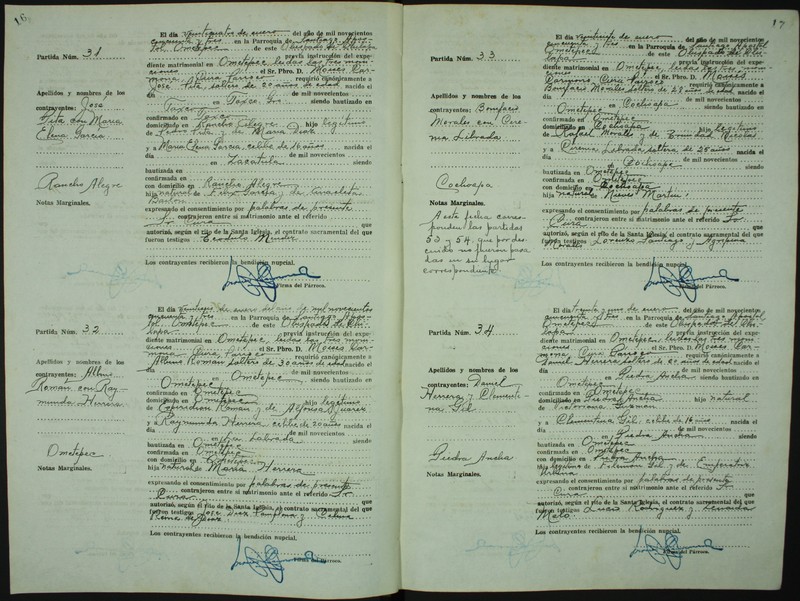 16
El día veinticuatro de enero del año de mil novecientos
cincuenta y tres en la Parroquia de Santiago Após-
tol, Ometepec de este Obispado de Chilapa
previa instrucción del expe-
Partida Núm. 31
diente matrimonial en Ometepec, leidas las tres moni-
ciones el Sr. Pbro. D. Moises Car-
mona Cura Parroco requirió canónicamente a
José Pita, soltero de 20 años de edad nacido el
Apellidos y nombres de los
día de mil novecientos
contrayentes: José
en Taxco, Gro. siendo bautizado en
Pita con Maria
Taxco
Elena Garcia
confirmado en Taxco
domiciliado en Rancho Alegre hijo legítimo
de Pedro Pita y de Maria Diaz
y a Maria Elena Garcia, celibe de años nacida el
día de mil novecientos
en Zacatula siendo
bautizada en
confirmada en
Rancho Alegre
con domicilio en Rancho Alegre
hija natural de Garcia y de
Notas Marginales.
expresando el consentimiento por palabras de presente
contrajeron entre si matrimonio ante el referido
Sr. Cura que
autorizó, según el rito de la Santa Iglesia, el contrato sacramental del que
fueron testigos Teodulo Mendez
Los contrayentes recibieron la bendición nupcial.
Firma del Párroco.
El día veintiseis de enero del año de mil novecientos
cincuenta y tres en la Parroquia de Santiago Após-
tol, Ometepec de este Obispado de Chi-
lapa previa instrucción del expe-
Partida Núm. 32
diente matrimonial en Ometepec, leidas las tres moni-
ciones el Sr. Pbro. D. Moises Car-
mona Cura Parroco requirió canónicamente a
Albino Román soltero de 30 años de edad nacido el
Apellidos y nombres de los
día de mil novecientos
contrayentes: Albino
en Ometepec siendo bautizado en
Román con Ray-
Ometepec
munda Herrera
confirmado en Ometepec
domiciliado en Ometepec hijo legítimo
de Román y de Alfonsa Juarez
y a Raymunda Herrera celibe de 20 años nacida el
día de mil novecientos
en Labrada siendo
bautizada en Ometepec
Ometepec
confirmada en Ometepec
con domicilio en Ometepec
Notas Marginales.
hija natural de Maria Herrera
expresando el consentimiento por palabras de presente
contrajeron entre si matrimonio ante el referido Sr.
Cura que
autorizó, según el rito de la Santa Iglesia, el contrato sacramental del que
fueron testigos José y
Los contrayentes recibieron la bendición nupcial.
Firma del Párroco.
17
El día veintiseis de enero del año de mil novecientos
cincuenta y tres en la Parroquia de Santiago Apóstol
Ometepec de este Obispado de Chi-
lapa previa instrucción del expe-
Partida Núm. 33
diente matrimonial en Ometepec, leidas las tres moni-
ciones el Sr. Pbro. D. Moises
Carmona Cura Parroco requirió canónicamente a
Bonifacio Morales soltero de 28 años de edad nacido el
Apellidos y nombres de los
día de mil novecientos
contrayentes: Bonifacio
en Cochoapa siendo bautizado en
Morales con Cire-
Ometepec
nia Librada
confirmado en Ometepec
domiciliado en Cochoapa hijo legítimo
de Rafael Morales y de Trinidad
y a Cirenia Librada soltera de 25 años nacida el
día de mil novecientos
en Cochoapa siendo
bautizada en Ometepec
Cochoapa
confirmada en Ometepec
con domicilio en Cochoapa
Notas Marginales.
hija natural de Nieves Martin
A esta fecha corres-
expresando el consentimiento por palabras de presente
ponden las partidas
contrajeron entre si matrimonio ante el referido Sr.
53 y 54, que por des-
Cura que
cuido no fueron pues-
autorizó, según el rito de la Santa Iglesia, el contrato sacramental del que
tas en su lugar
fueron testigos Lorenzo Santiago y Agripina
correspondiente.
Morales
Los contrayentes recibieron la bendición nupcial.
Firma del Párroco.
El día treinta y uno de enero del año de mil novecientos
cincuenta y tres en la Parroquia de Santiago Apóstol
Ometepec de este Obispado de Chi-
lapa previa instrucción del expe-
Partida Núm. 34
diente matrimonial en Ometepec, leidas las tres moni-
ciones el Sr. Pbro. D. Moises Car-
mona Cura Parroco requirió canónicamente a
Daniel Herrera soltero de 20 años de edad nacido el
Apellidos y nombres de los
día de mil novecientos
contrayentes: Daniel
en Piedra Ancha siendo bautizado en
Herrera y Clementi-
Ometepec
na Gil
confirmado en Ometepec
domiciliado en Piedra Ancha hijo natural
de Victoriana Guzman
y a Clementina Gil, celibe de 16 años nacida el
día de mil novecientos
en Piedra Ancha siendo
bautizada en Ometepec
Piedra Ancha
confirmada en Ometepec
con domicilio en Piedra Ancha
Notas Marginales.
hija legítima de Gil y de Emperatriz
expresando el consentimiento por palabras de presente
contrajeron entre si matrimonio ante el referido Sr.
Cura que
autorizó, según el rito de la Santa Iglesia, el contrato sacramental del que
fueron testigos Lucio Rodriguez y Zenaida
Melo
Los contrayentes recibieron la bendición nupcial.
Firma del Párroco.